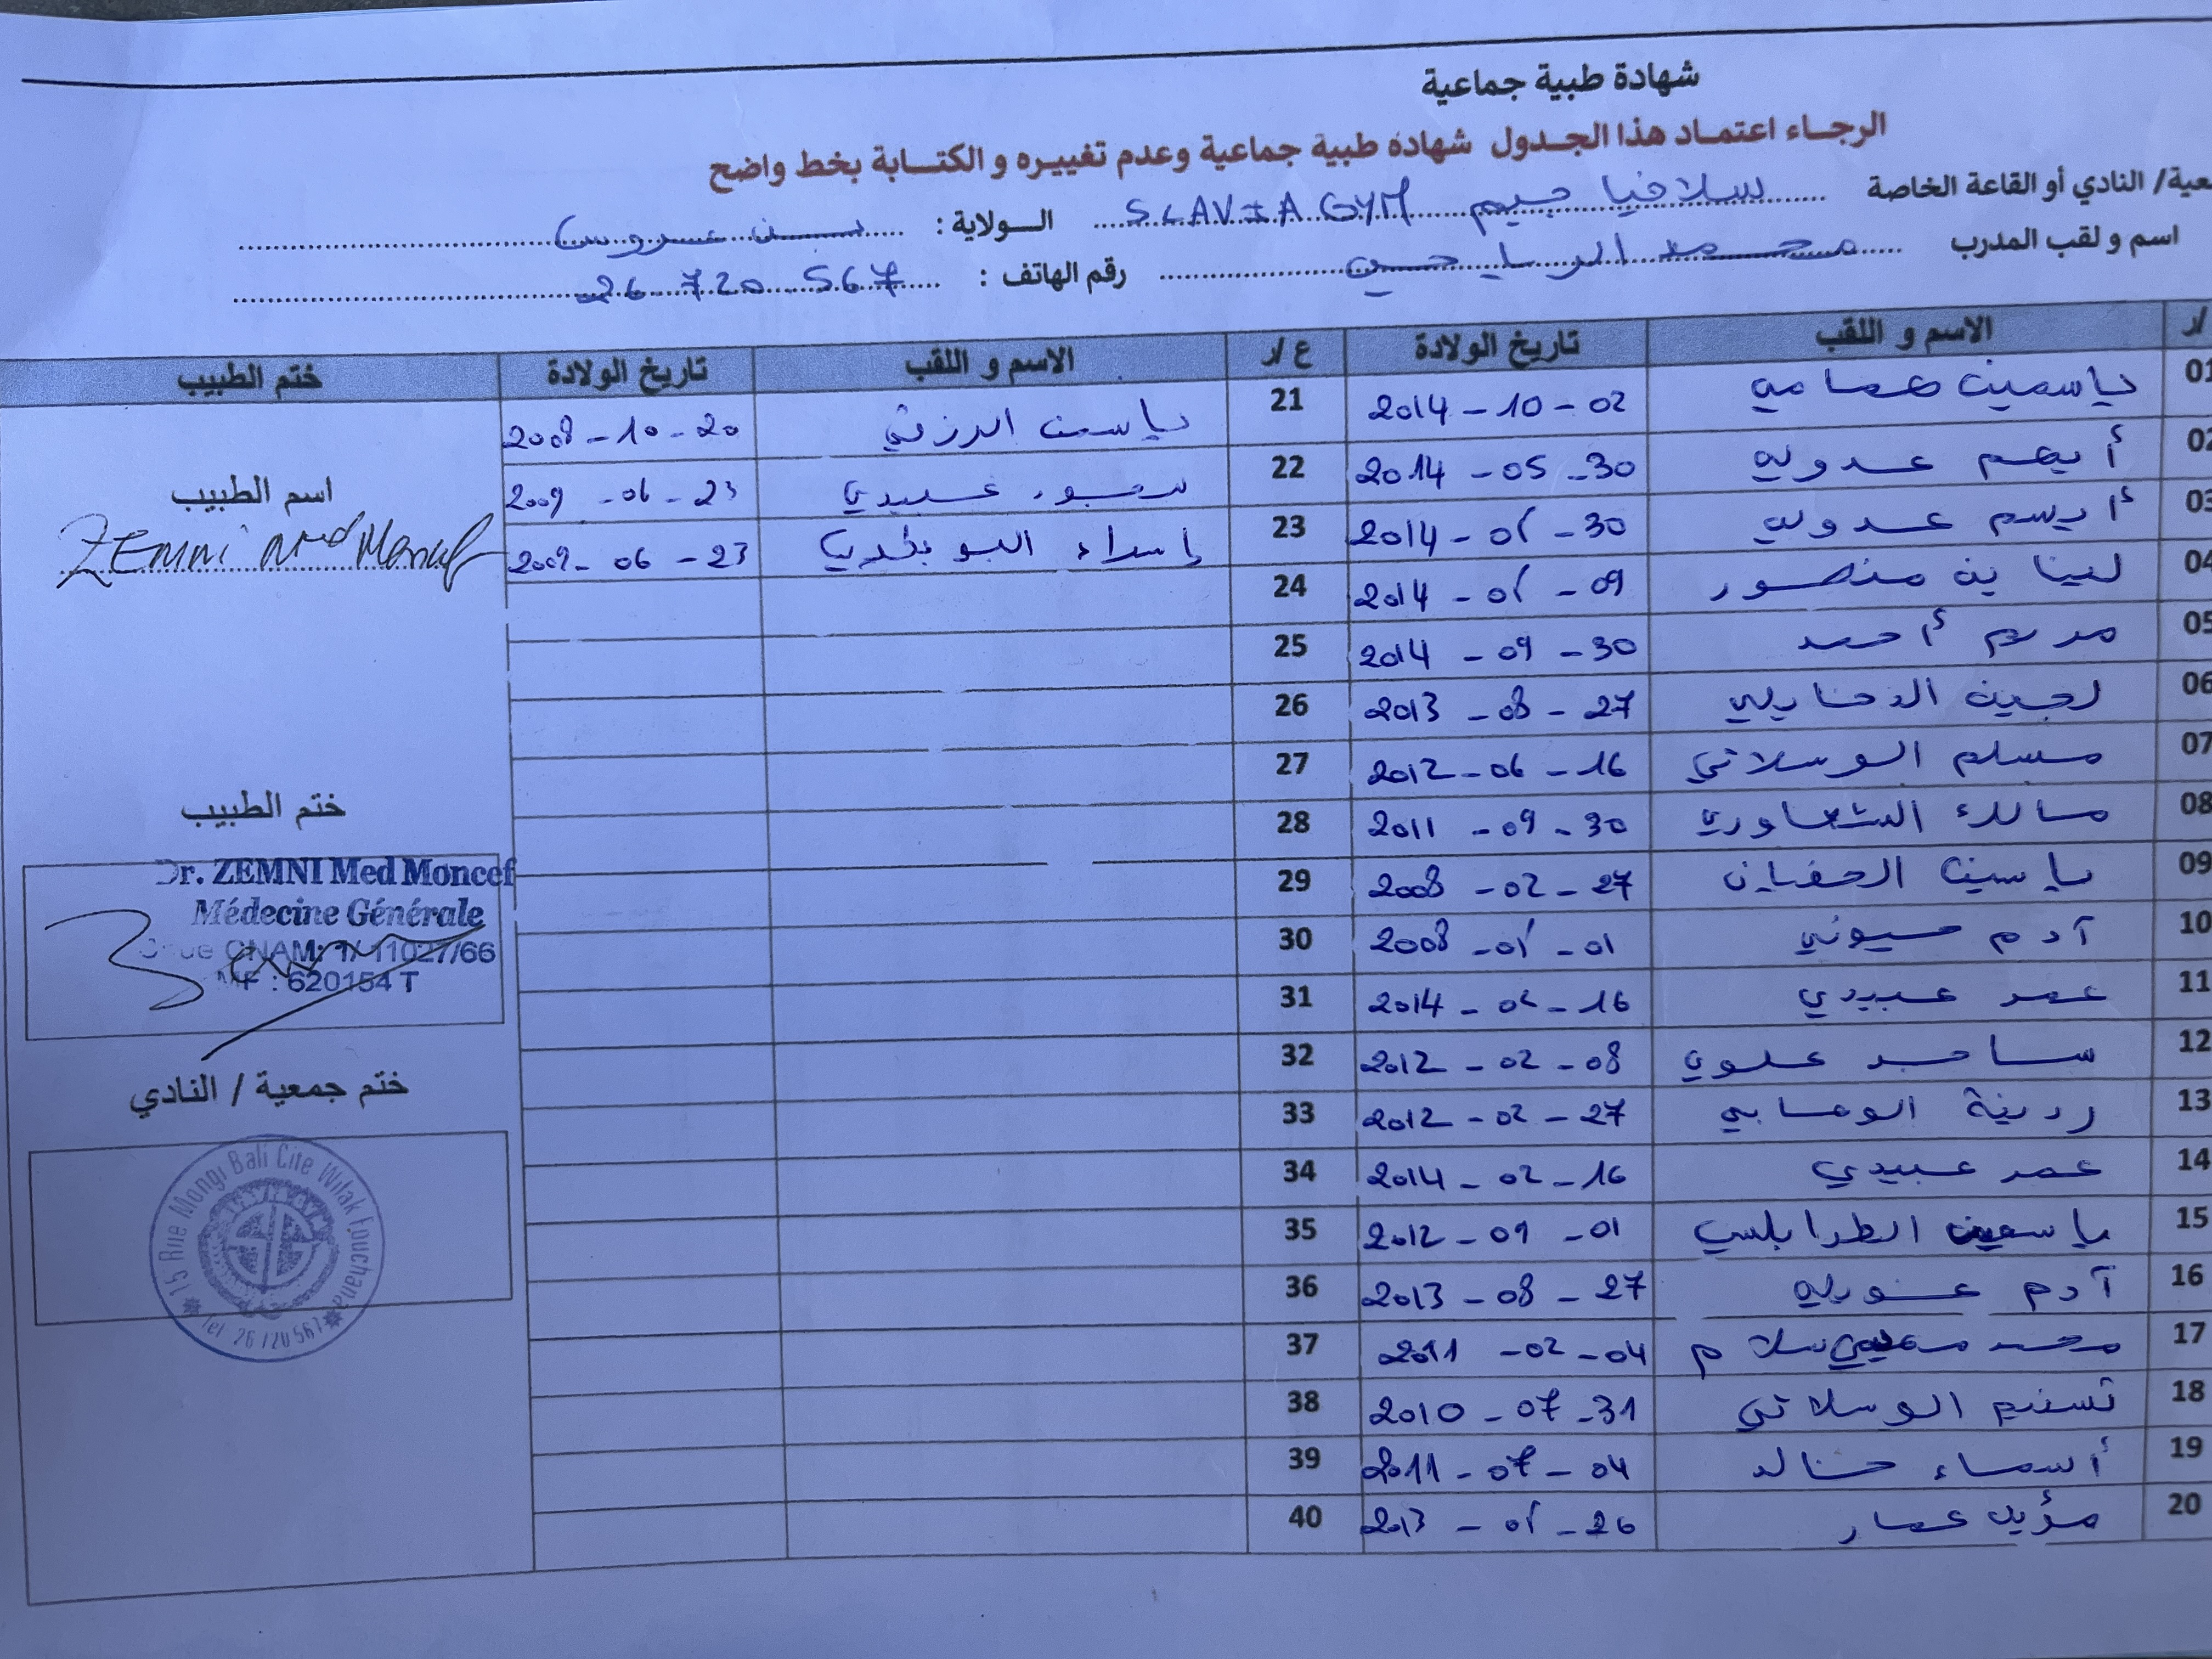 شهادة طبية جماعية
الرجاء اعتماد هذا الجدول شهادة طبية جماعية وعدم تغييره و الكتابة بخط واضح
عية/ النادي أو القاعة الخاصة سلافيا جيم SLAVIA GYM الولاية : بن عروس
اسم و لقب المدرب محمد الرياحي رقم الهاتف : 26 720 567
/ر الاسم و اللقب تاريخ الولادة ع/ر الاسم و اللقب تاريخ الولادة ختم الطبيب
01 ياسمين عصامي 2014 - 10 - 02 21 2008 - 10 - 20
02 أيهم عدولي 2014 - 05 - 30 22 عبيدي 2009 - 06 - 23
اسم الطبيب
03 عدولي 2014 - 01 - 30 23 إسراء 2009 - 06 - 23
ZEMNI Med Moncef
04 لينا بن منصور 2014 - 01 - 09 24
05 مريم أحمد 2014 - 09 - 30 25
06 لجين الدخايلي 2013 - 08 - 27 26
07 مسلم الوسلاتي 2012 - 06 - 16 27
08 مالك 2011 - 09 - 30 28
ختم الطبيب
09 ياسين 2008 - 02 - 27 29
10 آدم 2008 - 01 - 01 30
11 عمر عبيدي 2014 - 02 - 16 31
Dr. ZEMNI Med Moncef
Médecine Générale
CNAM: 1/11027/66
MF : 620154 T
12 ساجد علوي 2012 - 02 - 08 32
13 2012 - 02 - 27 33
ختم جمعية / النادي
14 عمر عبيدي 2014 - 02 - 16 34
15 ياسمين الطرابلسي 2012 - 09 - 01 35
16 آدم 2013 - 08 - 27 36
17 محمد سلام 2011 - 02 - 04 37
18 تسنيم الوسلاتي 2010 - 07 - 31 38
19 أسماء خالد 2011 - 07 - 04 39
20 مؤيد عمار 2013 - 01 - 26 40
15 Rue Mongi Bali Cite Wifak Fouchana
Tel 26 720 567